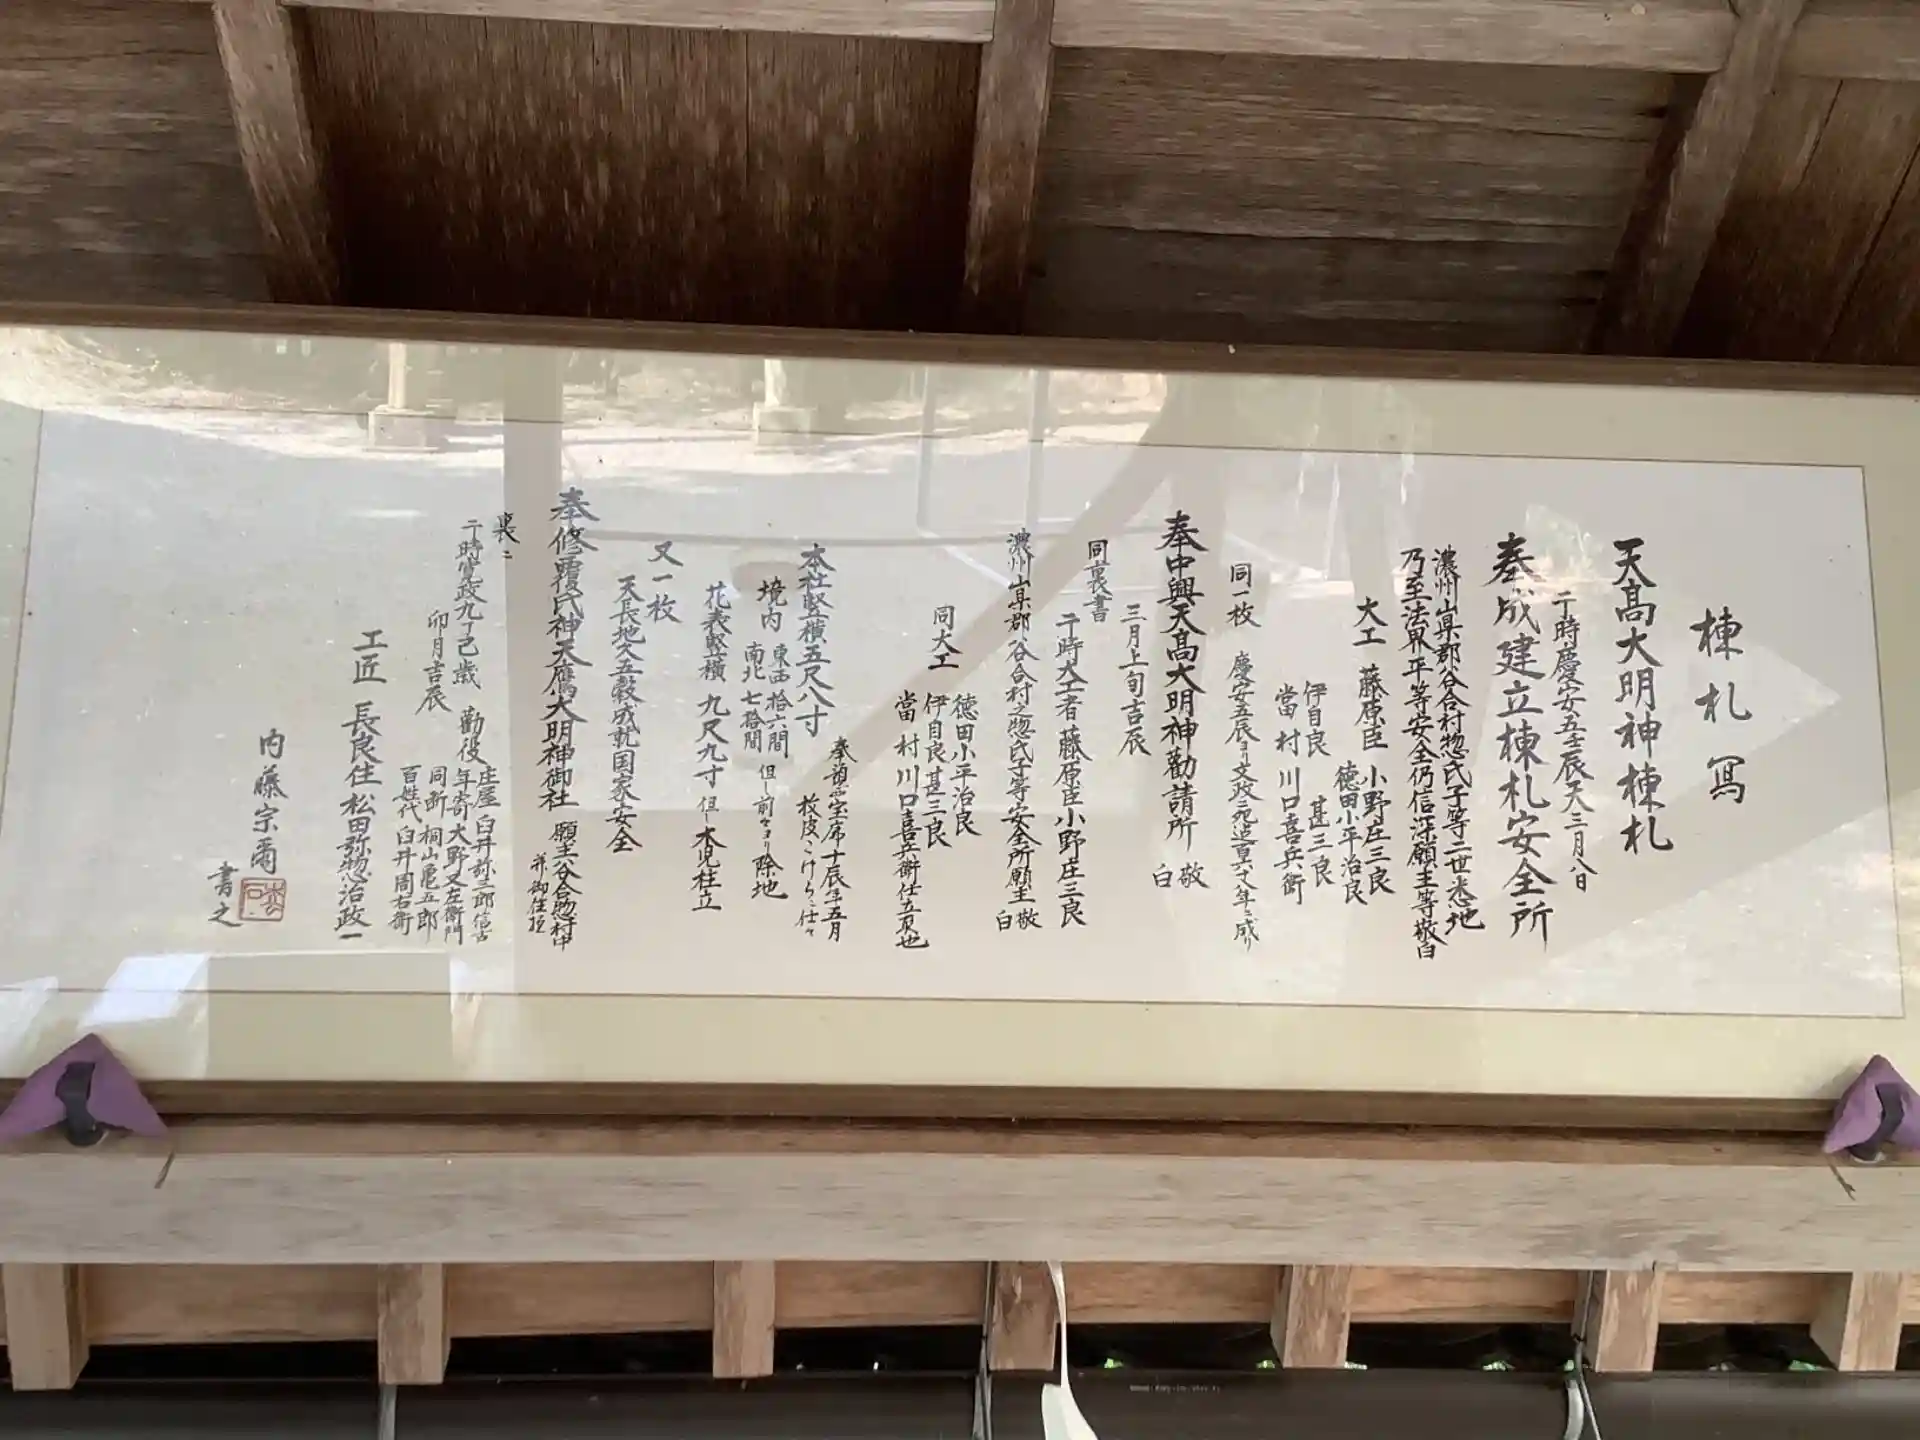 棟札写
天髙大明神棟札
干時慶安五壬辰天三月八日
奉成建立棟札安全所
濃州山県郡谷合村惣氏子等二世悉地
乃至法界平等安全仍信深願主等敬白
大工 藤原臣 小野庄三良
徳田小平治良
伊自良 甚三良
當村 川口喜兵衛
同一枚 慶安五辰ヨリ文政元迄
奉中興天髙大明神勸請所 敬白
三月上旬吉辰
同裏書
干時大工者藤原臣小野庄三良
濃州山県郡谷合村之惣氏子等安全所願主敬白
同大工 徳田小平治良
伊自良甚三良
當村川口喜兵衛仕
本社竪横五尺八寸
境内 東西拾六間
南北七拾間 但し前々ヨリ除地
花表竪横 九尺九寸 但し木児柱立
又一枚
天長地久五穀成就国家安全
奉修覆氏神天鷹大明神御社 願主谷合惣村中
裏ニ
干時寛政九丁己歳 勸役 庄屋 臼井弥三郎信古
卯月吉辰 年寄 大野又左衛門
同断 桐山亀五郎
百姓代 臼井周右衛
工匠 長良住 松田弥惣治政一
内藤宗爾
書之